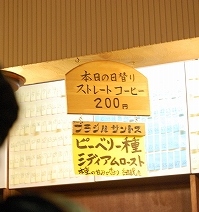 本日の日替り
ストレートコーヒー
200円
ブラジル サントス
ピーベリー種
ミディアムロースト